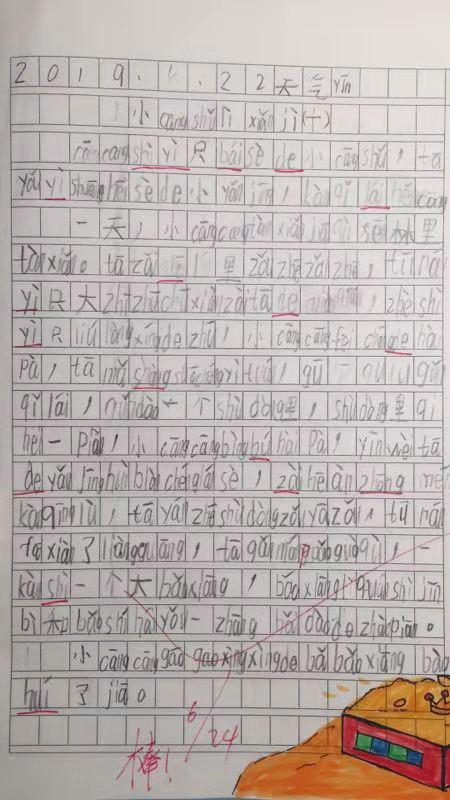 2019.1.22天气yīn
小cāng shǔ lì xiǎn jì(一)
cāng cang shì yì 只 bái sè de 小 cāng shǔ，tā
yǒu yì shuāng hēi sè de 小 yǎn jīng，kàn qǐ lái hěn
一天，小cāng cang tàn xiǎn jiā qù sēn林里
tàn xiǎn。tā zài 里 zǒu zhe zǒu zhe，tū rán
yì 只 大 zhī zhū chū xiàn zài tā de，zhè shì
yì 只 liú làng xíng de zhū，小 cāng cāng fēi cháng de hài
pà，tā mǎ shàng suō chéng yì tuán，gǔ 一 gǔ
qǐ lái，gǔn dào 一个 shù dòng 里，shù dòng 里 qī
hēi 一 piàn，小 cāng cāng bìng bú hài pà，yīn wèi tā
de yǎn jīng huì biàn chéng sè，zài hēi àn zhōng
kàn qīng lù，tā yán zhe shù dòng zǒu ya zǒu，tū rán
fā xiàn 了 liàng guāng，tā gǎn mán pǎo guò qù，一
kàn shì 一个大 bǎo xiāng，bǎo xiāng lǐ quán shì jīn
bì 和 bǎo shí hái yǒu 一 zhāng hǎi dào de zhào piàn。
小 cāng cāng gāo gao xìng xìng de bǎ bǎo xiāng bào
huí 了 jiā。
棒！
6/24